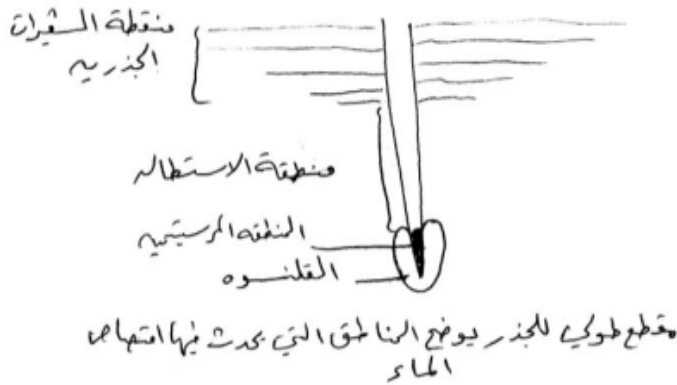 منطقة الشعيرات
الجذريه
منطقة الاستطاله
المنطقه المرستيميه
القلنسوه
مقطع طولي للجذر يوضح المناطق التي يحدث فيها امتصاص
الماء